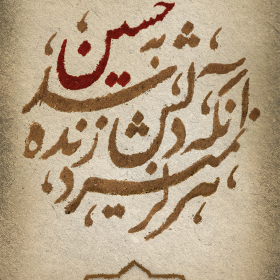 هرگز نمیرد
آنکه دلش زنده
شد به
حسین